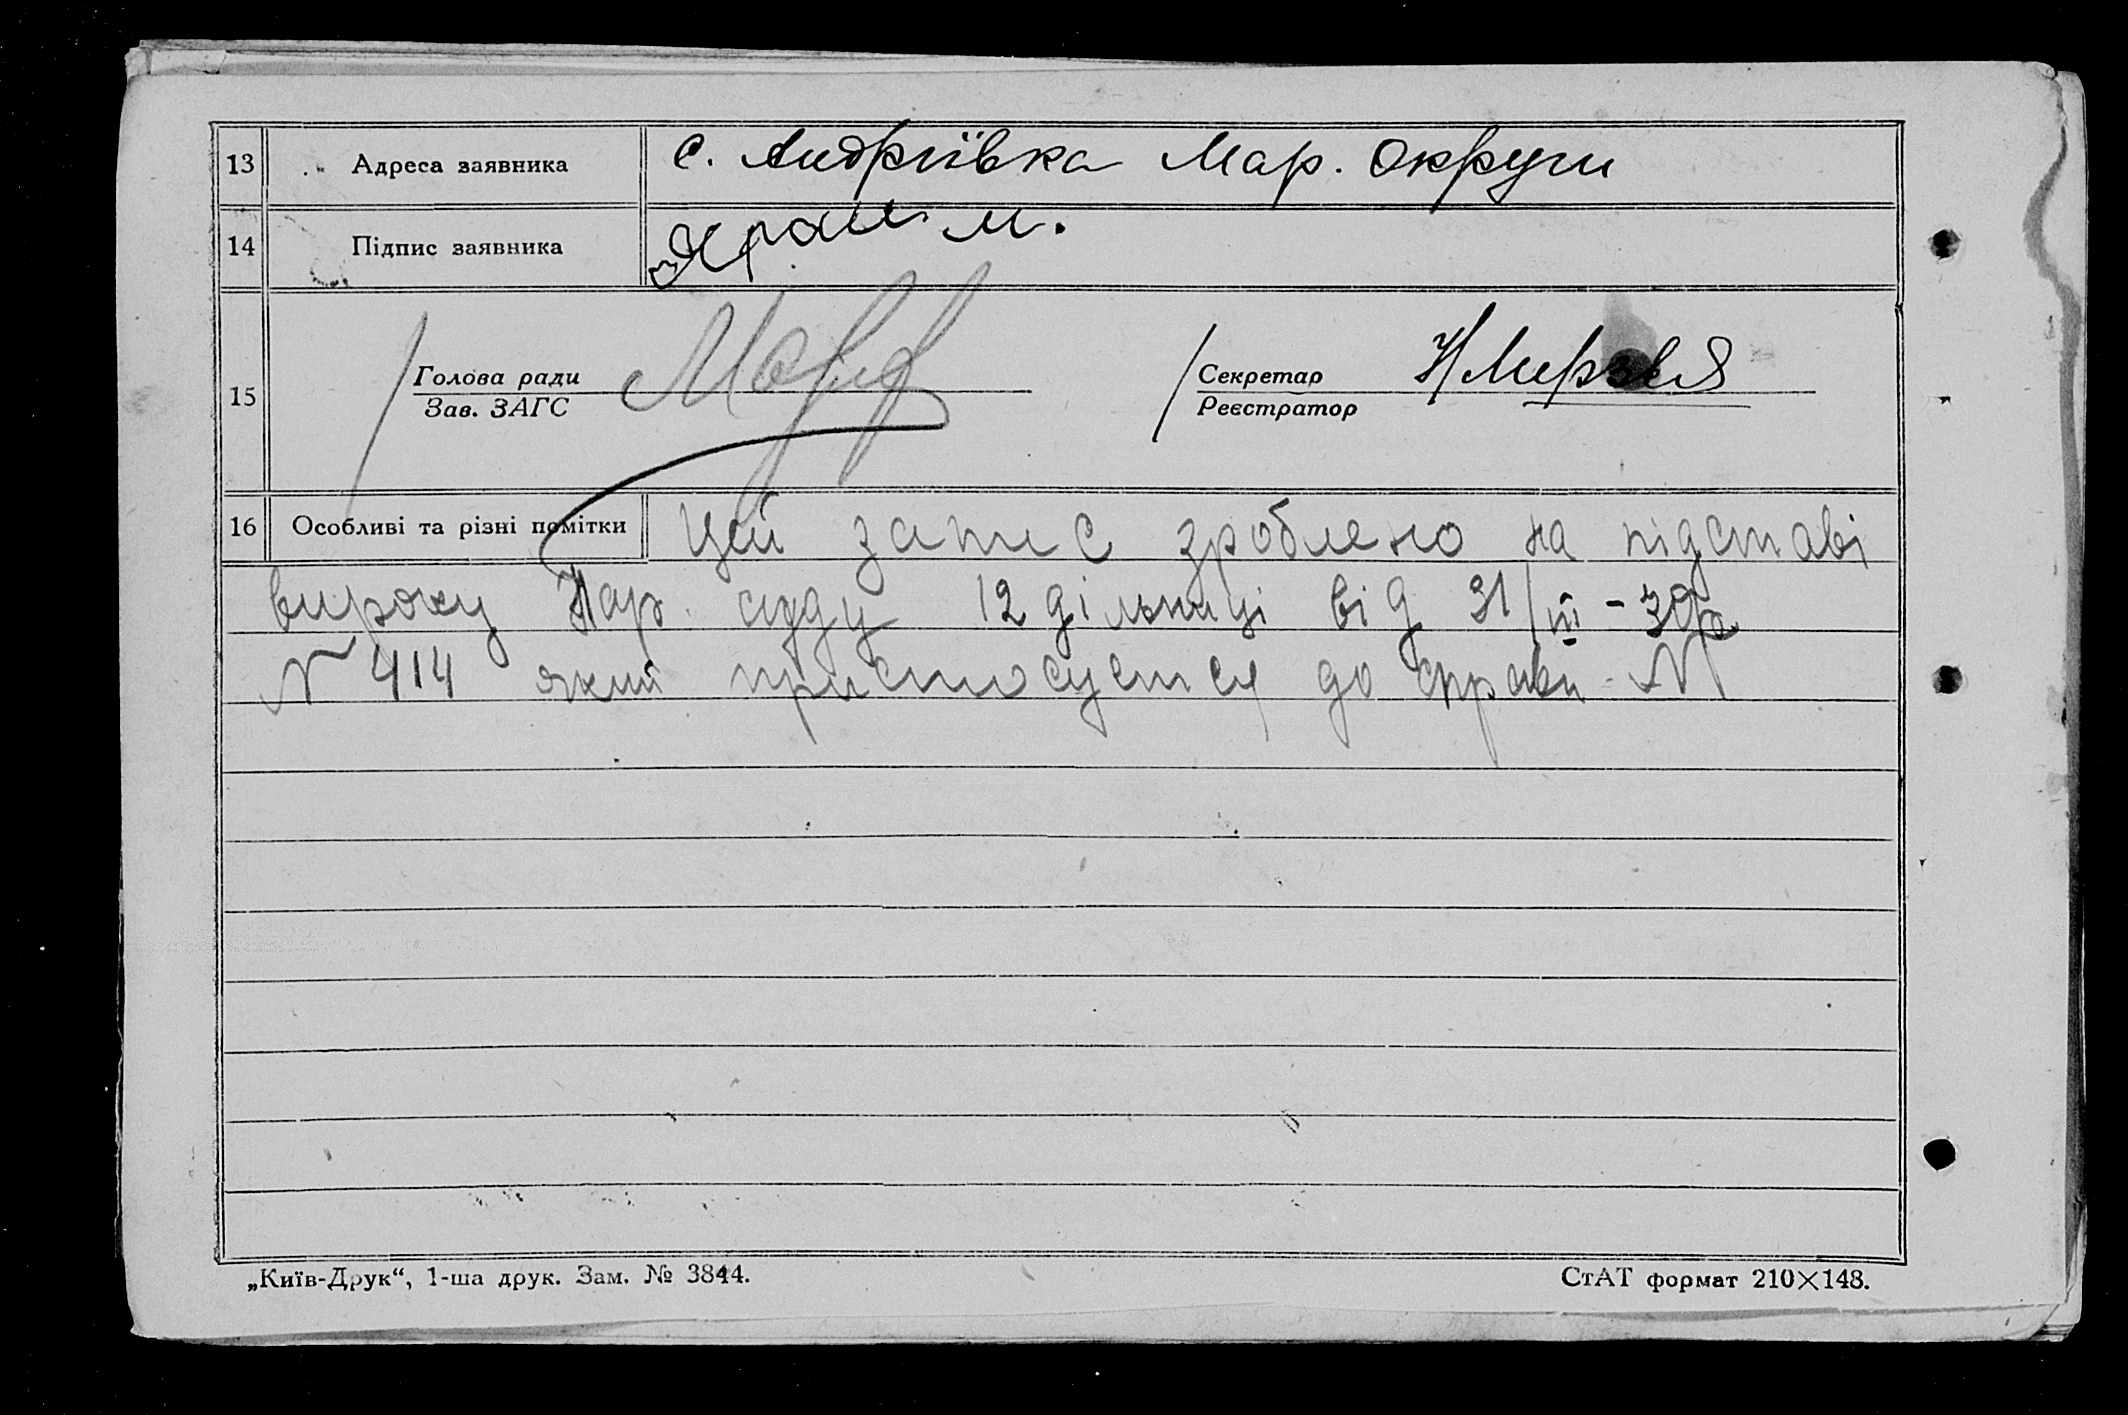 13 Адреса заявника с. Андріївка Мар. Округи
14 Підпис заявника
15 Голова ради Секретар
Зав. ЗАГС Реєстратор
16 Особливі та різні помітки Цей запис зроблено на підставі
вироку Нар. суду 12 дільниці від 31/III - 30р
N 414 який пристосуется до справи N
„Київ-Друк“, 1-ша друк. Зам. № 3844. СтАТ формат 210×148.